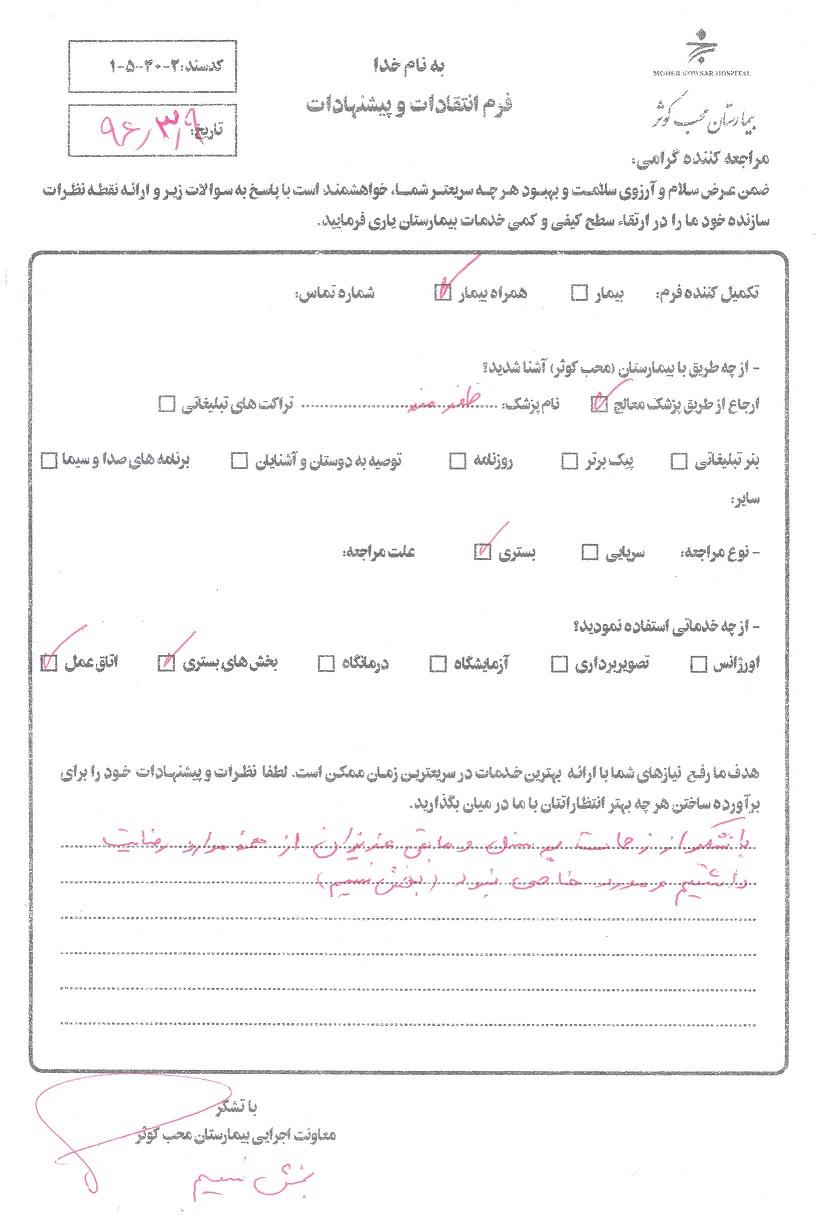 MOHEB KOWSAR HOSPITAL
بیمارستان محب کوثر
به نام خدا
فرم انتقادات و پیشنهادات
کدسند: ۲-۴۰-۵-۱
تاریخ: ۹۶/۳/۹
مراجعه کننده گرامی:
ضمن عرض سلام و آرزوی سلامت و بهبود هر چه سریعتر شما، خواهشمند است با پاسخ به سوالات زیر و ارائه نقطه نظرات
سازنده خود ما را در ارتقاء سطح کیفی و کمی خدمات بیمارستان یاری فرمایید.
تکمیل کننده فرم: بیمار □ همراه بیمار ☑ شماره تماس:
- از چه طریق با بیمارستان (محب کوثر) آشنا شدید؟
ارجاع از طریق پزشک معالج ☑ نام پزشک: ظفرمند تراکت های تبلیغاتی □
بنر تبلیغاتی □ پیک برتر □ روزنامه □ توصیه به دوستان و آشنایان □ برنامه های صدا و سیما □
سایر:
- نوع مراجعه: سرپایی □ بستری ☑ علت مراجعه:
- از چه خدماتی استفاده نمودید؟
اورژانس □ تصویربرداری □ آزمایشگاه □ درمانگاه □ بخش های بستری ☑ اتاق عمل ☑
هدف ما رفع نیازهای شما با ارائه بهترین خدمات در سریعترین زمان ممکن است. لطفا نظرات و پیشنهادات خود را برای
برآورده ساختن هر چه بهتر انتظاراتتان با ما در میان بگذارید.
با تشکر از زحمات پرسنل و مابقی عزیزان از همه موارد رضایت
داشتیم و مورد خاصی نبود (بخش نسیم)
با تشکر
معاونت اجرایی بیمارستان محب کوثر
بخش نسیم